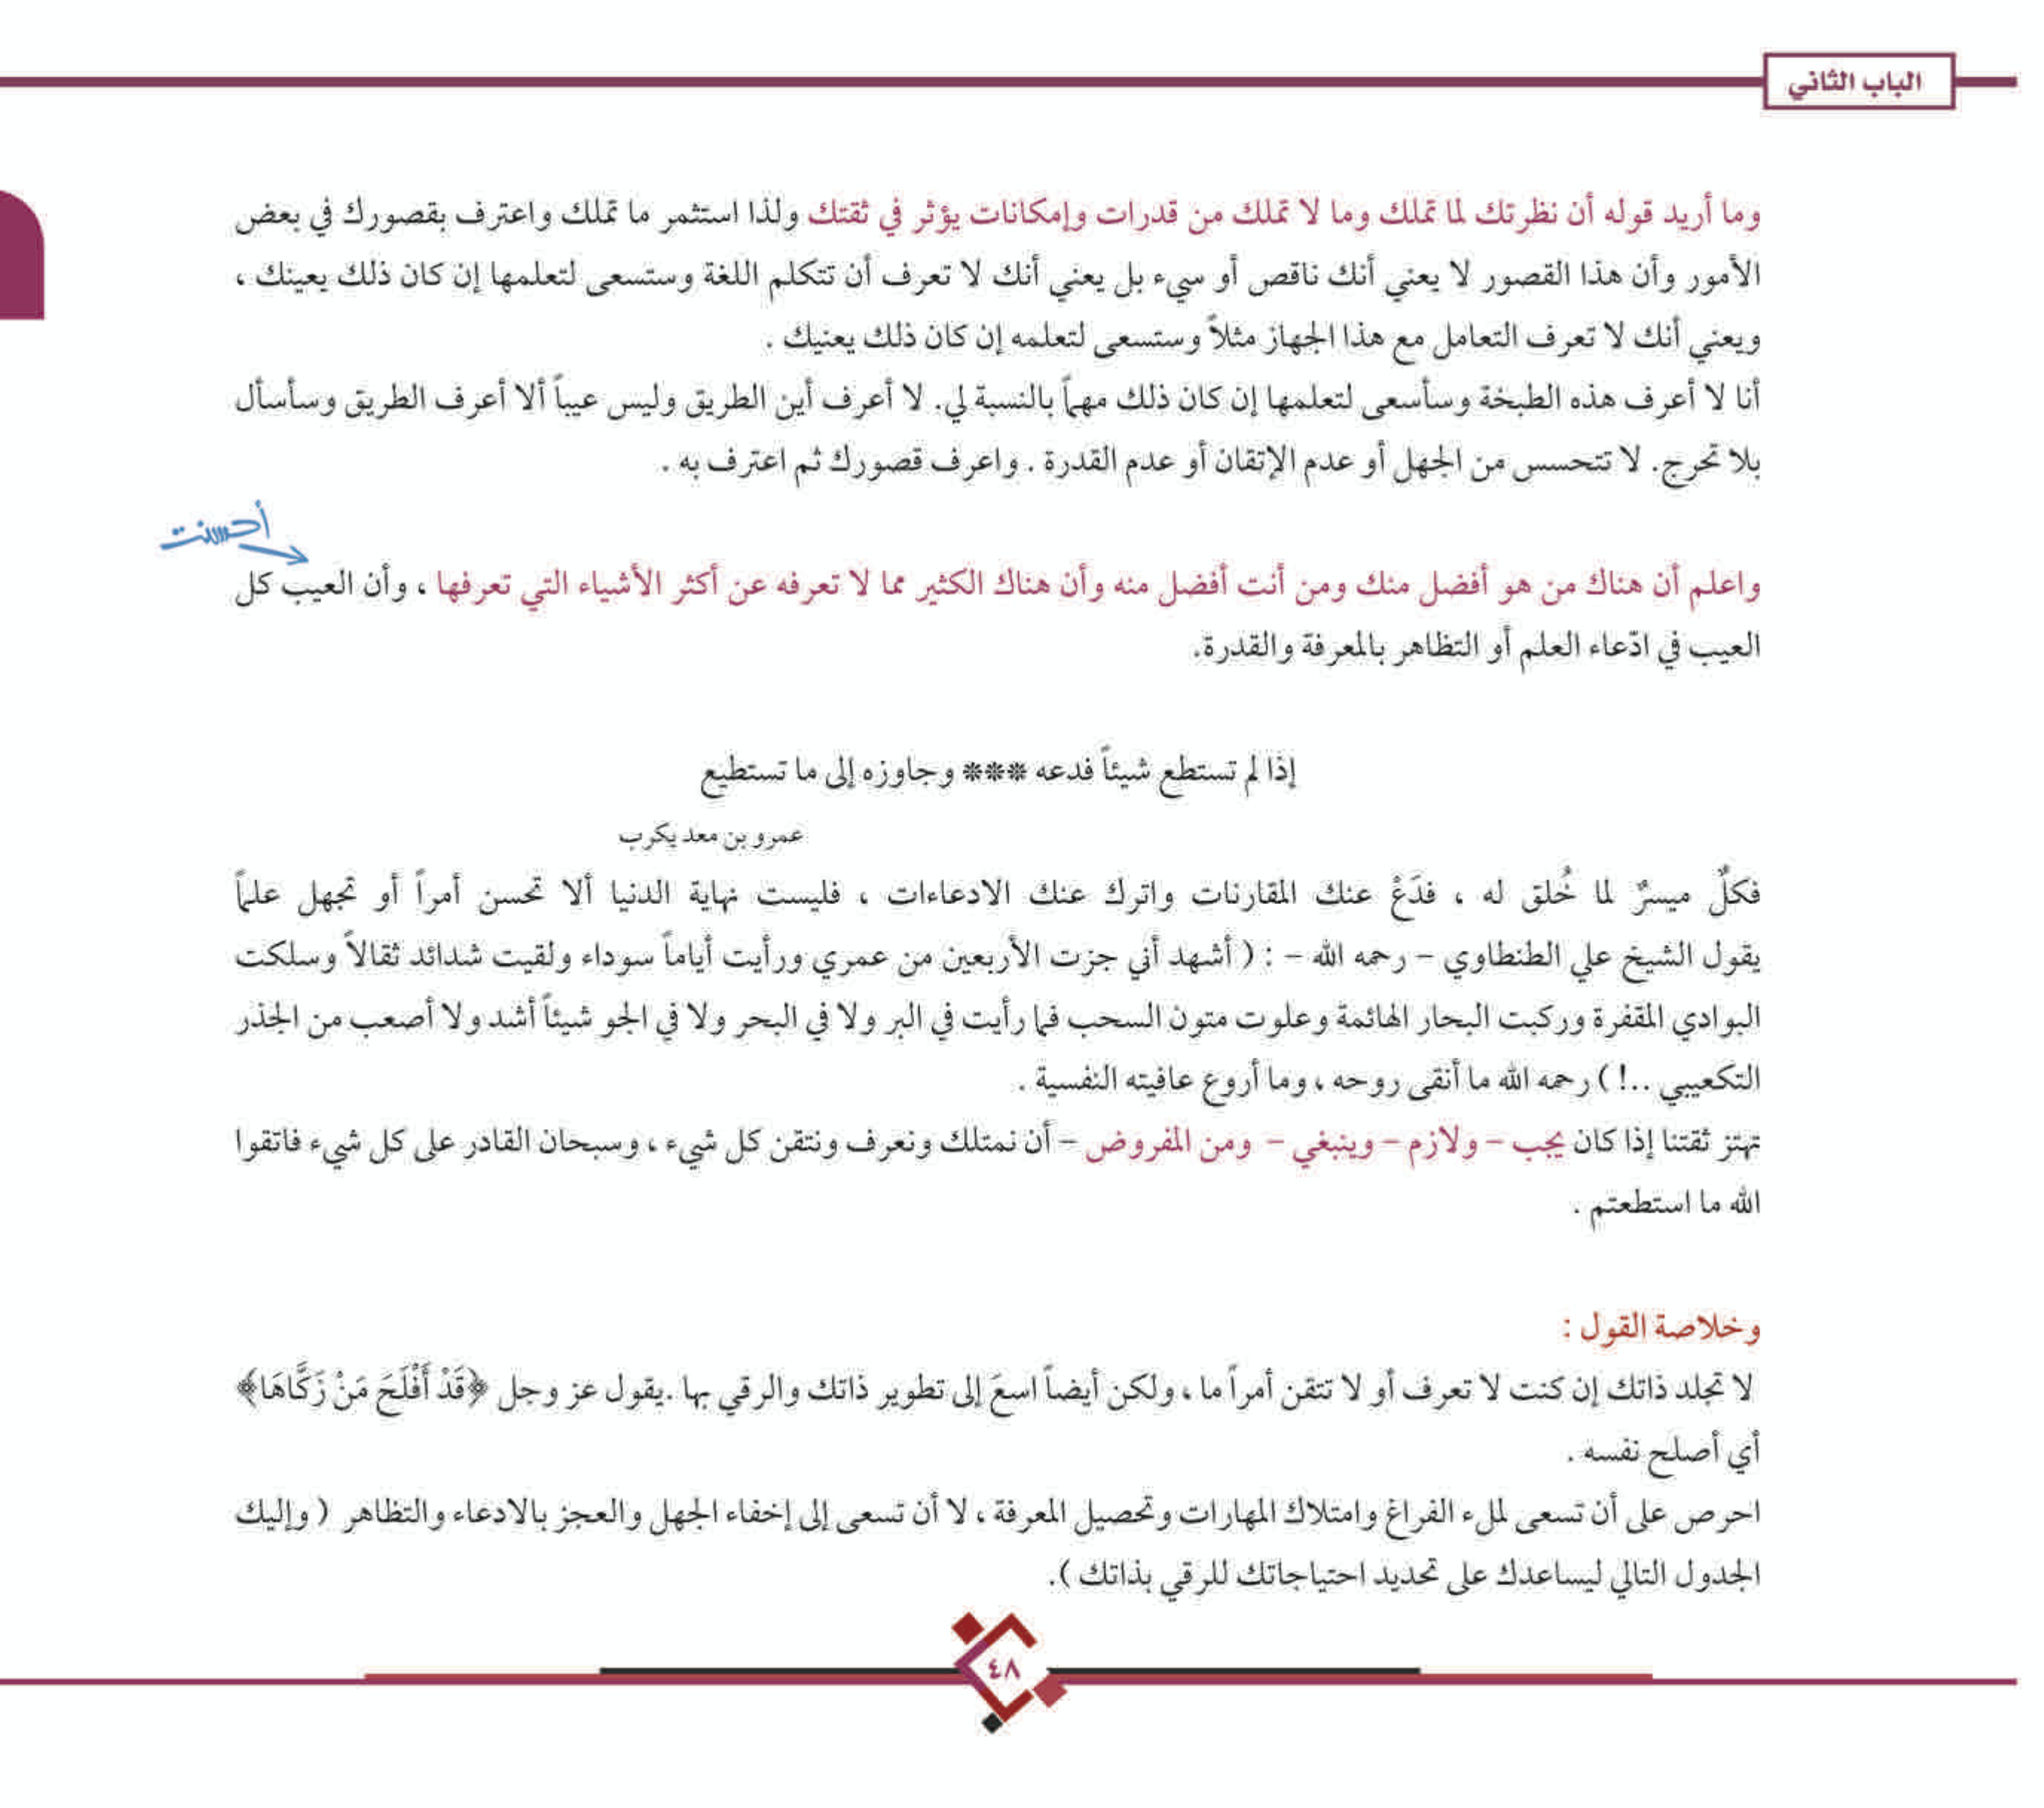 الباب الثاني
وما أريد قوله أن نظرتك لما تملك وما لا تملك من قدرات وإمكانات يؤثر في ثقتك ولذا استثمر ما تملك واعترف بقصورك في بعض
الأمور وأن هذا القصور لا يعني أنك ناقص أو سيء بل يعني أنك لا تعرف أن تتكلم اللغة وستسعى لتعلمها إن كان ذلك يعينك ،
ويعني أنك لا تعرف التعامل مع هذا الجهاز مثلاً وستسعى لتعلمه إن كان ذلك يعنيك .
أنا لا أعرف هذه الطبخة وسأسعى لتعلمها إن كان ذلك مهماً بالنسبة لي. لا أعرف أين الطريق وليس عيباً ألا أعرف الطريق وسأسأل
بلا تحرج. لا تتحسس من الجهل أو عدم الإتقان أو عدم القدرة . واعرف قصورك ثم اعترف به .
أحسنت
واعلم أن هناك من هو أفضل منك ومن أنت أفضل منه وأن هناك الكثير مما لا تعرفه عن أكثر الأشياء التي تعرفها ، وأن العيب كل
العيب في ادّعاء العلم أو التظاهر بالمعرفة والقدرة.
إذا لم تستطع شيئاً فدعه *** وجاوزه إلى ما تستطيع
عمرو بن معد يكرب
فكلٌ ميسرٌ لما خُلق له ، فدَعْ عنك المقارنات واترك عنك الادعاءات ، فليست نهاية الدنيا ألا تحسن أمراً أو تجهل علماً
يقول الشيخ علي الطنطاوي – رحمه الله – : ( أشهد أني جزت الأربعين من عمري ورأيت أياماً سوداء ولقيت شدائد ثقالاً وسلكت
البوادي المقفرة وركبت البحار الهائمة وعلوت متون السحب فما رأيت في البر ولا في البحر ولا في الجو شيئاً أشد ولا أصعب من الجذر
التكعيبي ..! ) رحمه الله ما أنقى روحه ، وما أروع عافيته النفسية .
تهتز ثقتنا إذا كان يجب – ولازم – وينبغي – ومن المفروض – أن نمتلك ونعرف ونتقن كل شيء ، وسبحان القادر على كل شيء فاتقوا
الله ما استطعتم .
وخلاصة القول :
لا تجلد ذاتك إن كنت لا تعرف أو لا تتقن أمراً ما ، ولكن أيضاً اسعَ إلى تطوير ذاتك والرقي بها .يقول عز وجل ﴿قَدْ أَفْلَحَ مَنْ زَكَّاهَا﴾
أي أصلح نفسه .
احرص على أن تسعى لملء الفراغ وامتلاك المهارات وتحصيل المعرفة ، لا أن تسعى إلى إخفاء الجهل والعجز بالادعاء والتظاهر ( وإليك
الجدول التالي ليساعدك على تحديد احتياجاتك للرقي بذاتك ).
٤٨